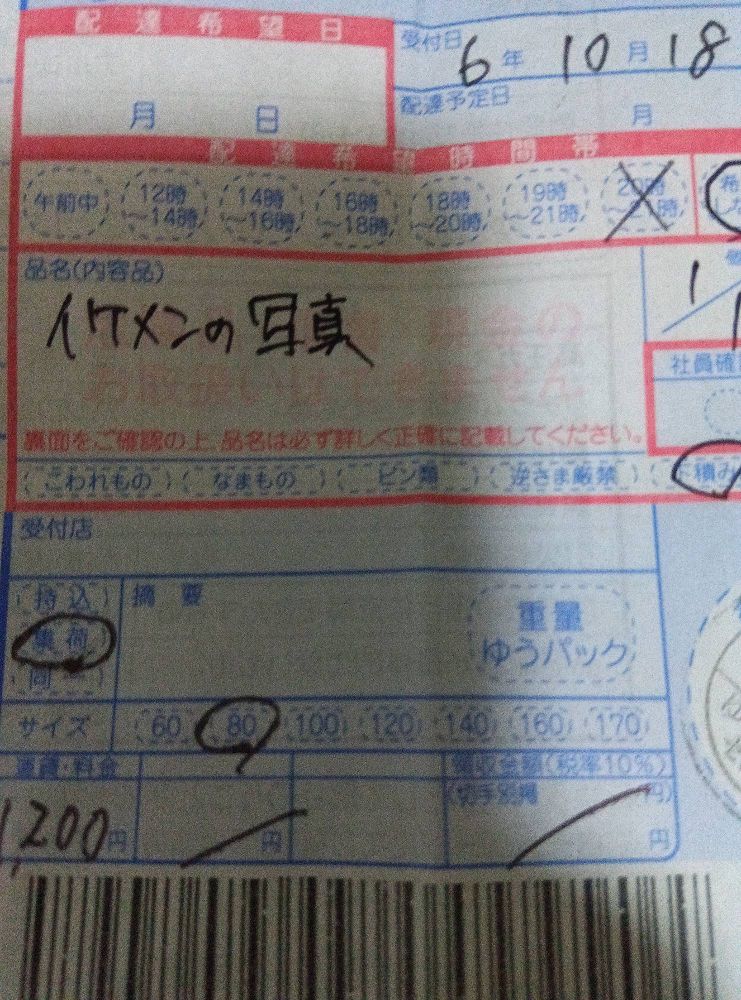 配達希望日
月 日
受付日
6年 10月 18
配達予定日
月
配達希望時間帯
午前中 12時～14時 14時～16時 16時～18時 18時～20時 19時～21時 20時～21時 希
しな
品名(内容品)
イケメンの写真
1
お取扱いはできません
社員確
裏面をご確認の上、品名は必ず詳しく正確に記載してください。
こわれもの なまもの ビン類 逆さま厳禁 積み
受付店
持込 摘要
集荷
同一
重量
ゆうパック
サイズ 60 80 100 120 140 160 170
運賃・料金 領収金額(税率10%)
(切手別掲 円)
1,200円 円 円